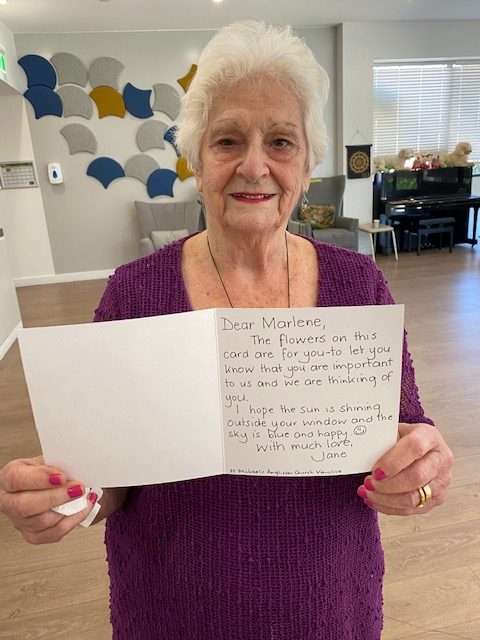 Dear Marlene,
The flowers on this
card are for you-to let you
know that you are important
to us and we are thinking of
you.
I hope the sun is shining
outside your window and the
sky is blue and happy.
With much love,
Jane
St Michaels Anglican Church Vaucluse